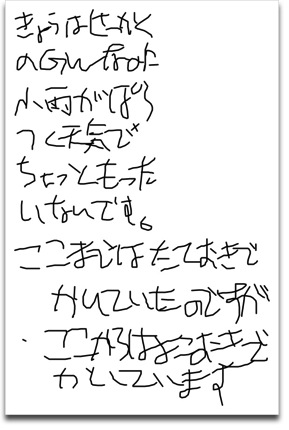 きょうはせっかく
のGWなのに
小雨がぱら
つく天気で
ちょっともった
いないです。
ここまではたておきで
かいていたのですが
ここからはよこおきで
かいています